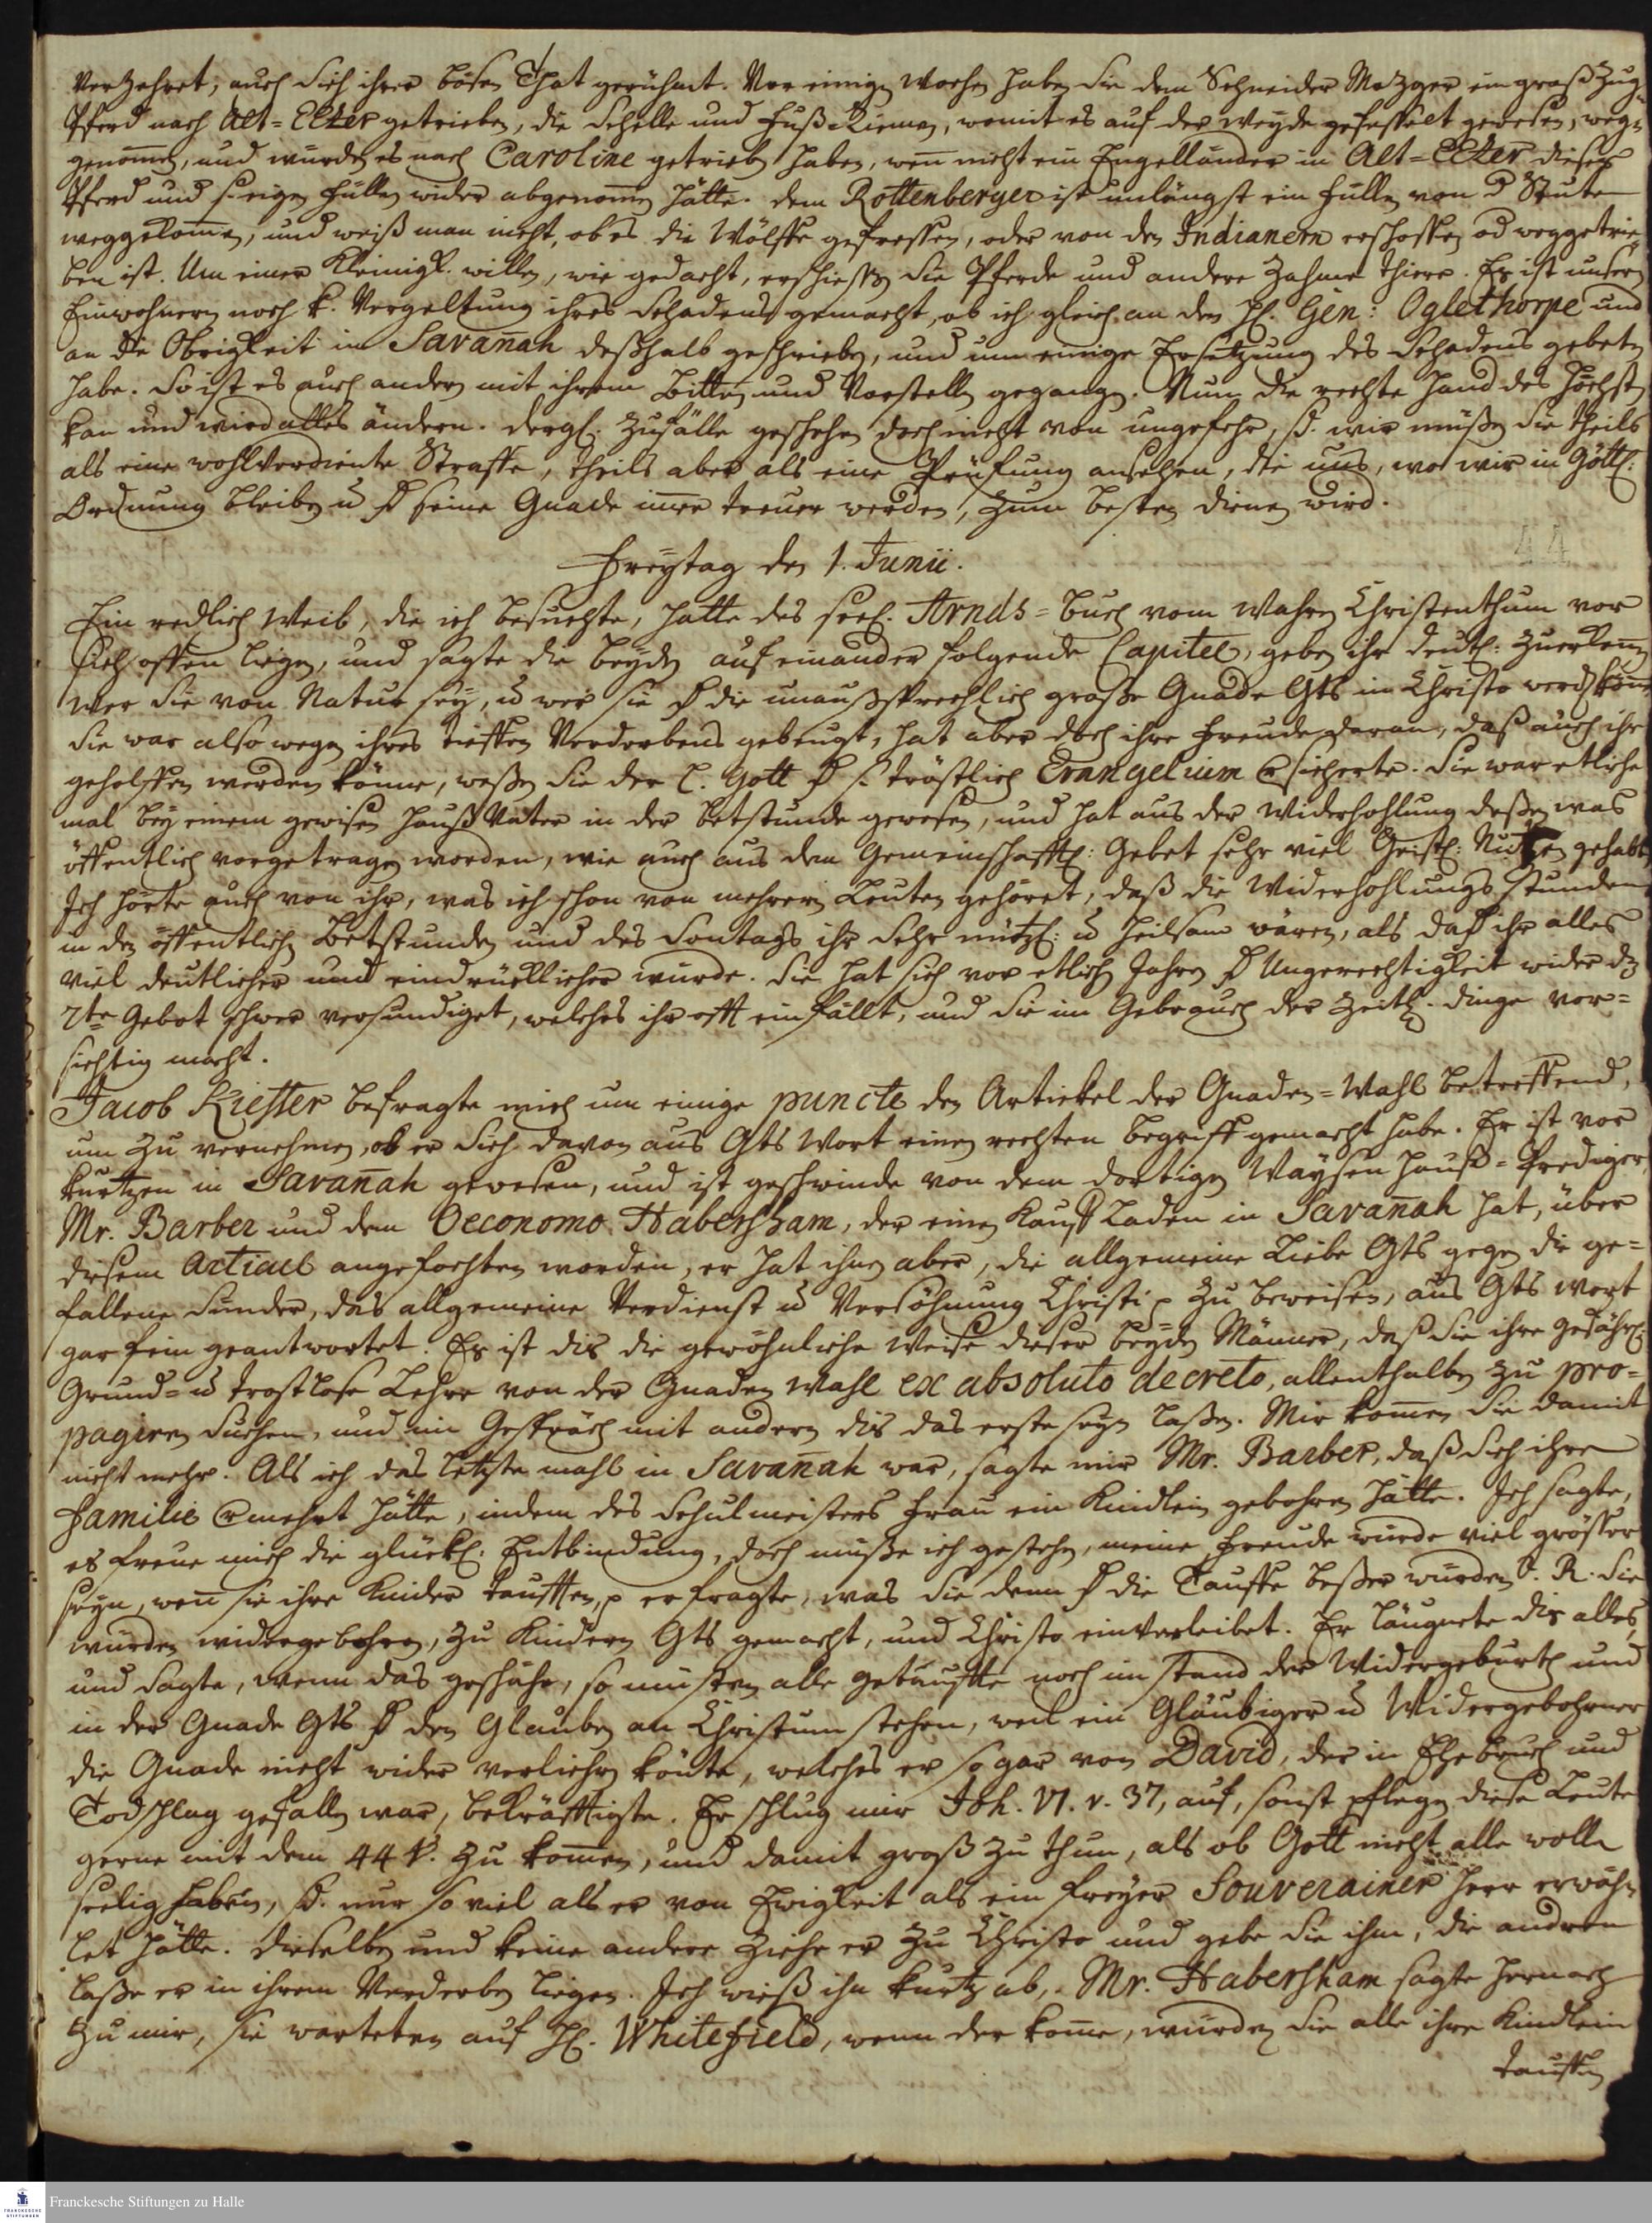 verzehret, auch sich ihrer bösen That gerühmt. Vor einigen Wochen haben sie dem Schneider Metzger ein groß Zug-
Pferd nach Alt-Ebzer getrieben, die Schelle und Fuß-Riemen, womit es auf der Weyde gefesselt gewesen, weg-
genom̄en, und würden es nach Caroline getrieben haben, weñ nicht ein Engelländer in Alt-Ebzer dieses
Pferd und s. eigen Füllen wider abgenom̄en hätte. dem Rottenberger ist unlängst ein Füllen von d Stute
weggekom̄en, und weiß man nicht, ob es die Wölffe gefressen, oder von den Indianern erschossen od weggetrie-
ben ist. Um einer Kleinigk. willen, wie gedacht, erschiessen sie Pferde und andere zahme Thiere. Es ist unsern
Einwohnern noch k. Vergeltung ihres Schadens gemacht, ob ich gleich an den H. Gen: Oglethorpe und
an die Obrigkeit in Savañah deßhalb geschrieben, und um einige Ersetzung des Schadens gebeten
habe. So ist es auch andern mit ihrem Bitten und Vorstellen gegangen. Nun die rechte Hand des Höchsten
kan und wird alles ändern. dergl. Zufälle geschehen doch nicht von ungefehr, sd. wir müßen sie theils
als eine wohlverdiente Straffe, theils aber als eine Prüfung ansehen, die uns, wo wir in Göttl:
Ordnung bleiben u. d seine Gnade im̄er treuer werden, zum besten dienen wird.
Freytag den 1. Junii.
Ein redlich Weib, die ich besuchte, hatte des seel. Arnds-Buch vom wahren Christenthum vor
sich offen liegen, und sagte die beyden auf einander folgende Capitel, geben ihr deutl: zu erkeñen
wer sie von Natur sey, u. wer sie d die unaußsprechlich große Gnade Gts in Christo werden köñe
Sie war also wegen ihres tieffen Verderbens gebeugt, hat aber doch ihre Freude daran, daß auch ihr
geholffen werden könne, weßen sie der l. Gott d s. tröstlich Evangelium versicherte. Sie war etliche
mal bey einem gewissen Hauß Vater in der Betstunde gewesen, und hat aus der Widerhohlung deßen was
öffentlich vorgetragen worden, wie auch aus dem Gemeinschafftl: Gebet sehr viel Geistl: Nutzen gehabt
Ich hörte auch von ihr, was ich schon von mehrern Leuten gehöret, daß die Widerhohlungs stunden
in den öffentlichen Betstunden und des Sontags ihr sehr nützl: u. heilsam wären, als dad ihr alles
viel deutlicher und eindrücklicher würde. Sie hat sich vor etlichen Jahren d Ungerechtigkeit wider dz
7te Gebot schwer versündiget, welches ihr offt einfällt, und sie im Gebrauch der zeitl. dinge vor-
sichtig macht.
Jacob Kieffer befragte mich um einige puncte den Artickel der Gnaden-Wahl betreffend,
um zu vernehmen, ob er sich davon aus Gts Wort einen rechten Begriff gemacht habe. Er ist vor
kurtzen in Savañah gewesen, und ist geschwinde von dem dortigen Waysen Hauß-Prediger
Mr. Barber und dem Oeconomo Habersham, der einen Kauff Laden in Savañah hat, über
diesem Articul angefochten worden, er hat ihnen aber, die allgemeine Liebe Gts gegen die ge-
fallene Sünder, das allgemeine Verdienst u. Versöhnung Christi p zu beweisen, aus Gts wort
gar fein geantwortet. Es ist dis die gewöhnliche Weise dieser beyden Männer, daß sie ihre gefährl:
Grund- u. trostlose Lehre von der Gnaden Wahl ex absoluto decreto, allenthalben zu pro-
pagiren suchen, und im Gespräch mit andern dis das erste seyn laßen. Mir kom̄en sie damit
nicht mehr. Als ich das letzte mahl in Savañah war, sagte mir Mr. Barber, daß sich ihre
Familie vermehrt hätte, indem des Schulmeisters Frau ein Kindlein gebohren hätte. Ich sagte,
es freue mich die glückl: Entbindung, doch müße ich gestehen, meine Freude würde viel grösser
seyn, weñ sie ihre Kinder taufften, p er fragte, was sie denn d die Tauffe beßer würden? R. Sie
würden widergebohren, zu Kindern Gts gemacht, und Christo einverleibet. Er läugnete dis alles,
und sagte, wenn das geschähe, so müsten alle getauffte noch im stand der Widergeburth und
in der Gnade Gts d den Glauben an Christum stehen, weil ein Gläubiger u. Widergebohrner
die Gnade nicht wider verliehren könte, welches er so gar von David, der in Ehebruch und
Todschlag gefallen war, bekräfftigte. Er schlug mir Joh. VI. v. 37, auf, sonst pflegen diese Leute
gerne mit dem 44 v. zu kom̄en, und damit groß zu thun, als ob Gott nicht alle wolle
seelig haben, sd. nur so viel als er von Ewigkeit als ein freyer Souverainer Herr erwäh-
let hätte. dieselben und keine andere ziehe er zu Christo und gebe sie ihm, die andren
laße er in ihrem Verderben liegen. Ich wieß ihn kurtz ab. Mr. Habersham sagte hernach
zu mir, sie warteten auf H. Whitefield, wenn der kom̄e, würden sie alle ihre Kindlein
tauffen
44
Franckesche Stiftungen zu Halle
FRANCKESCHE STIFTUNGEN